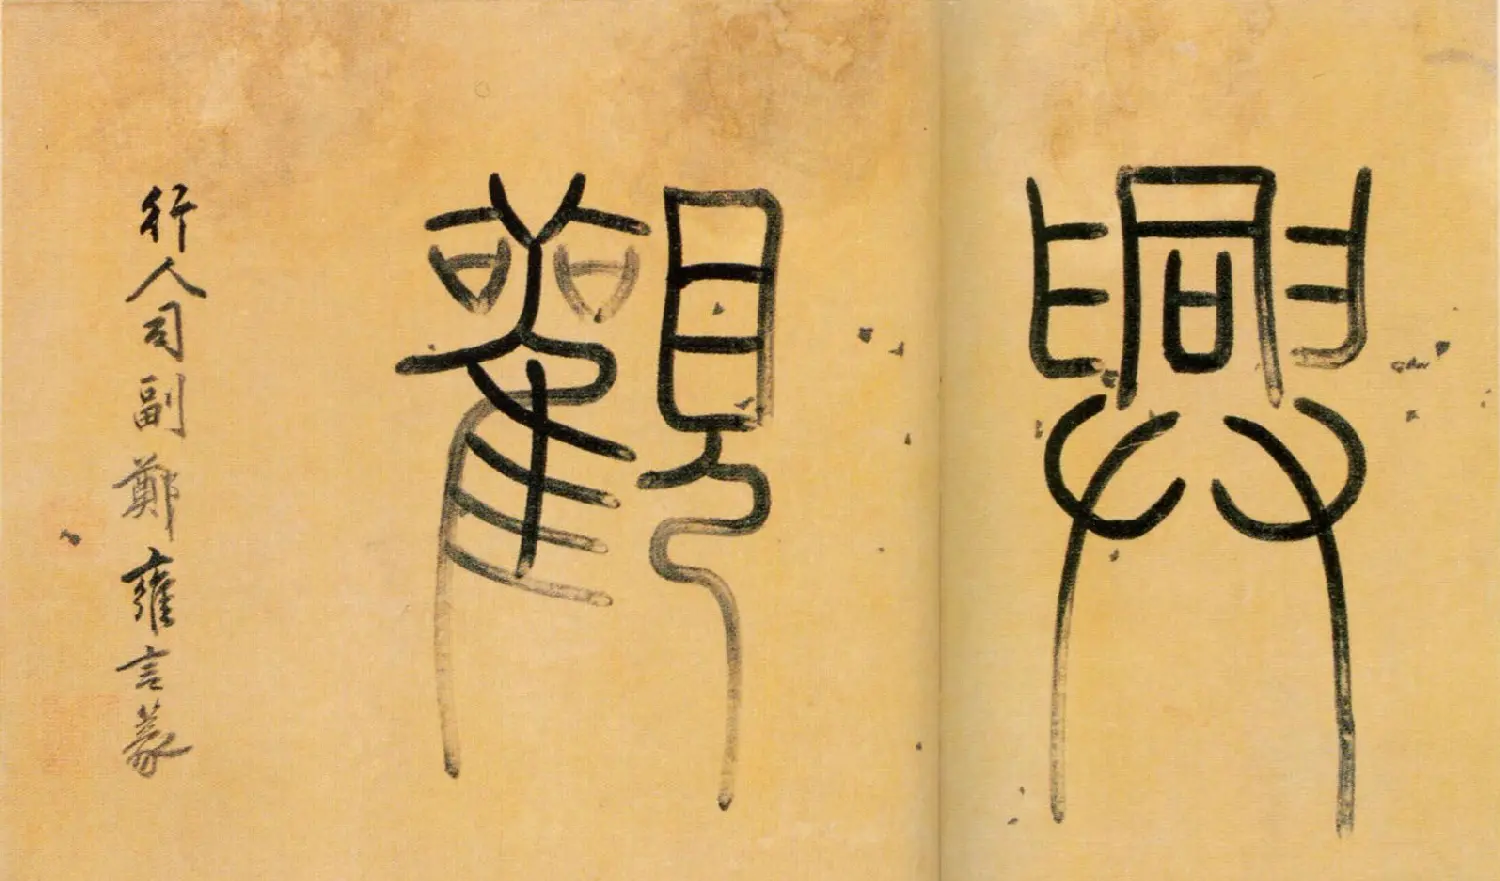 興觀
行人司副鄭雍言篆